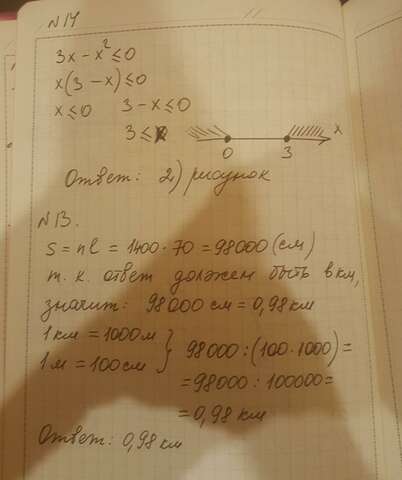 N14
3x - x² ≤ 0
x(3 - x) ≤ 0
x ≤ 0   3 - x ≤ 0
3 ≤ x
0   3   x
Ответ: 2) рисунок
N13.
S = nl = 1400 · 70 = 98000 (см)
т. к. ответ должен быть в км,
значит: 98000 см = 0,98 км
1 км = 1000 м
1 м = 100 см
} 98000 : (100 · 1000) =
= 98000 : 100000 =
= 0,98 км
Ответ: 0,98 км